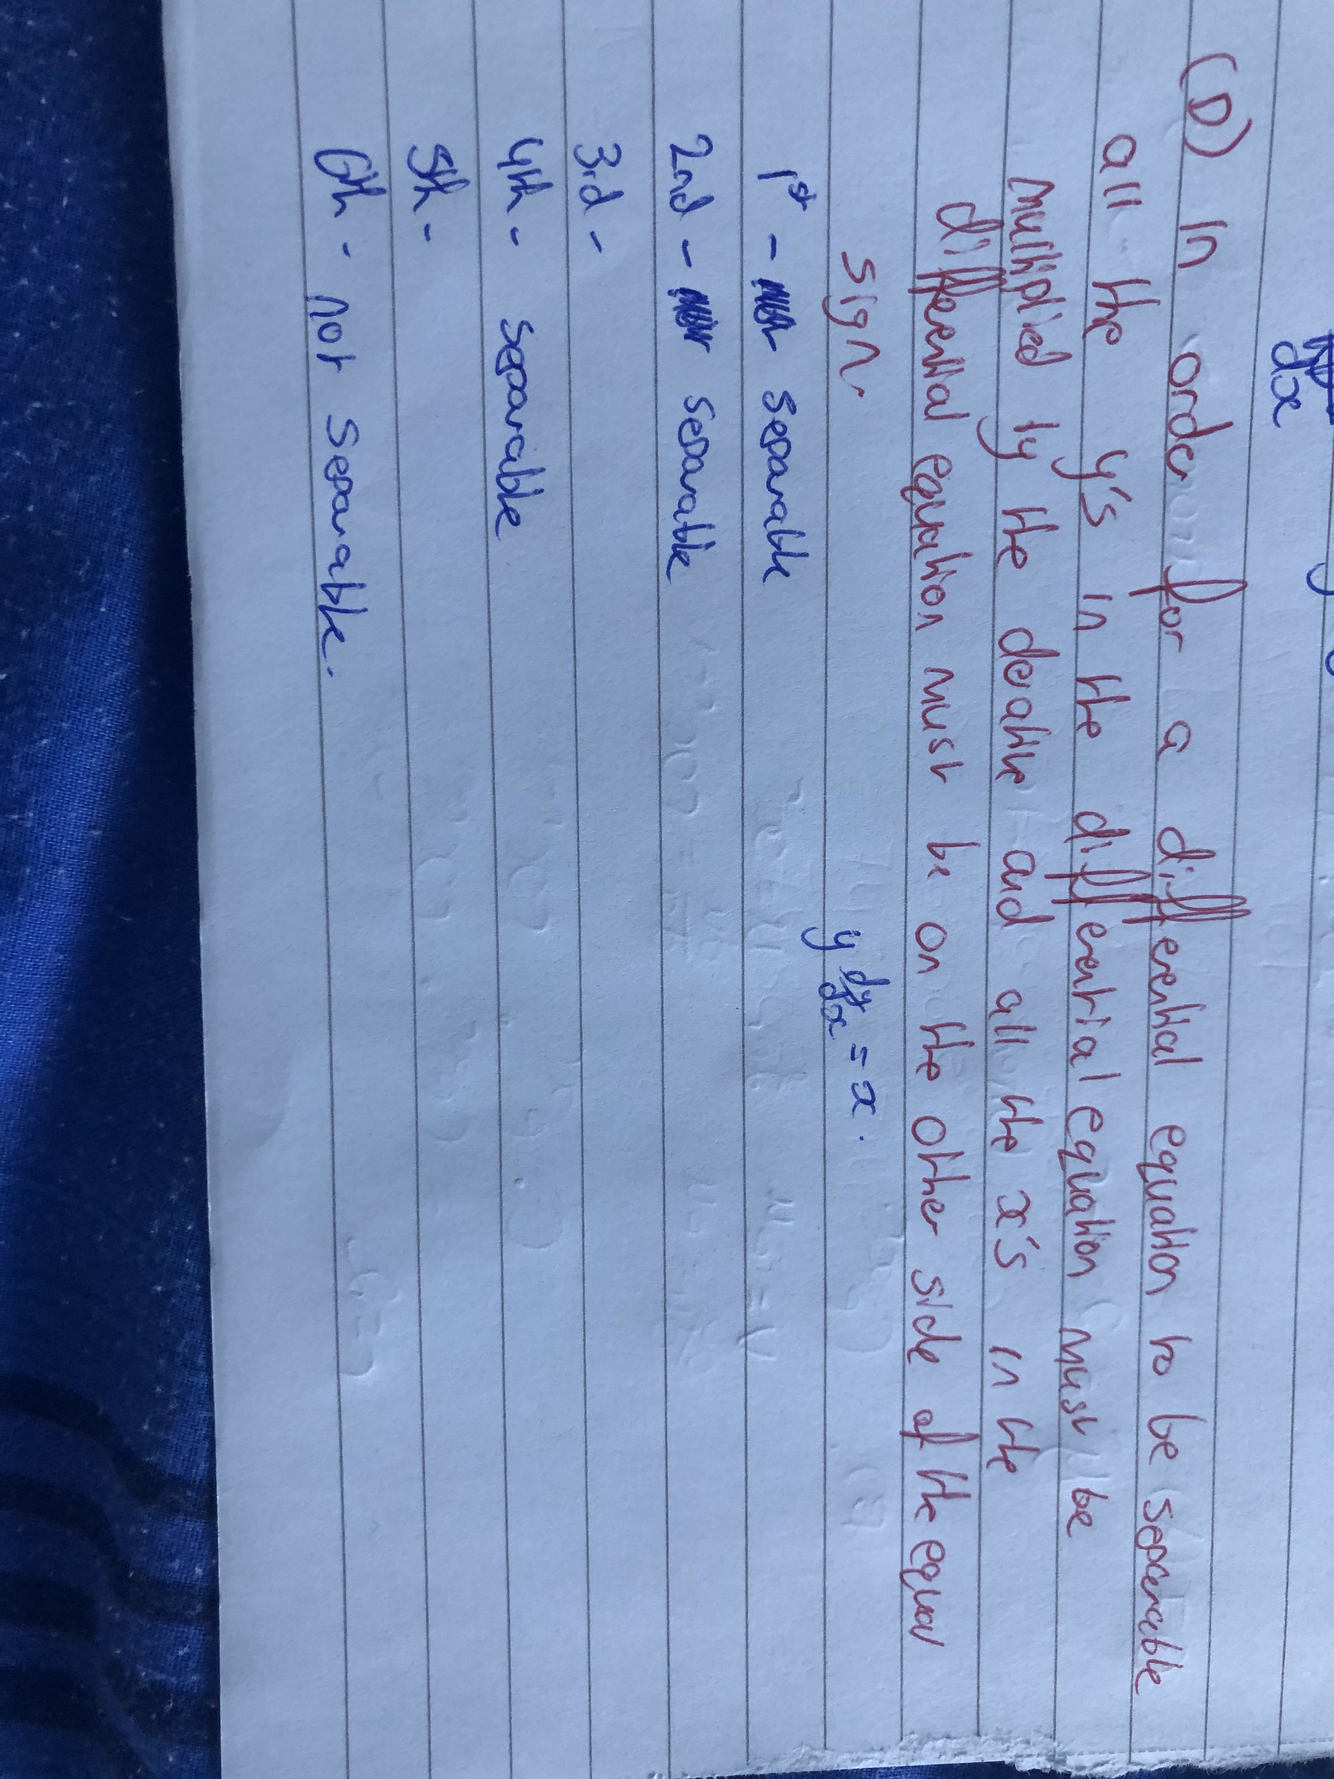 dx
(D) In order for a differential equation to be seperable
all the y's in the differential equation must be
multiplied by the derative and all the x's in the
differential equation must be on the other side of the equal
sign.
y dy/dx = x.
1st - separable
2nd - separable
3rd -
4th - separable
5th -
6th - not separable.